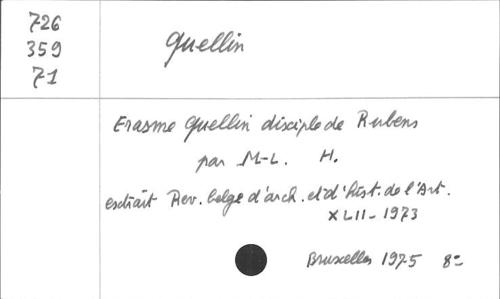 726
359
71
Quellin
Erasme Quellin disciple de Rubens
par M-L. H.
extrait Rev. belge d'arch. et d'hist. de l'Art.
XLII - 1973
Bruxelles 1975 8º